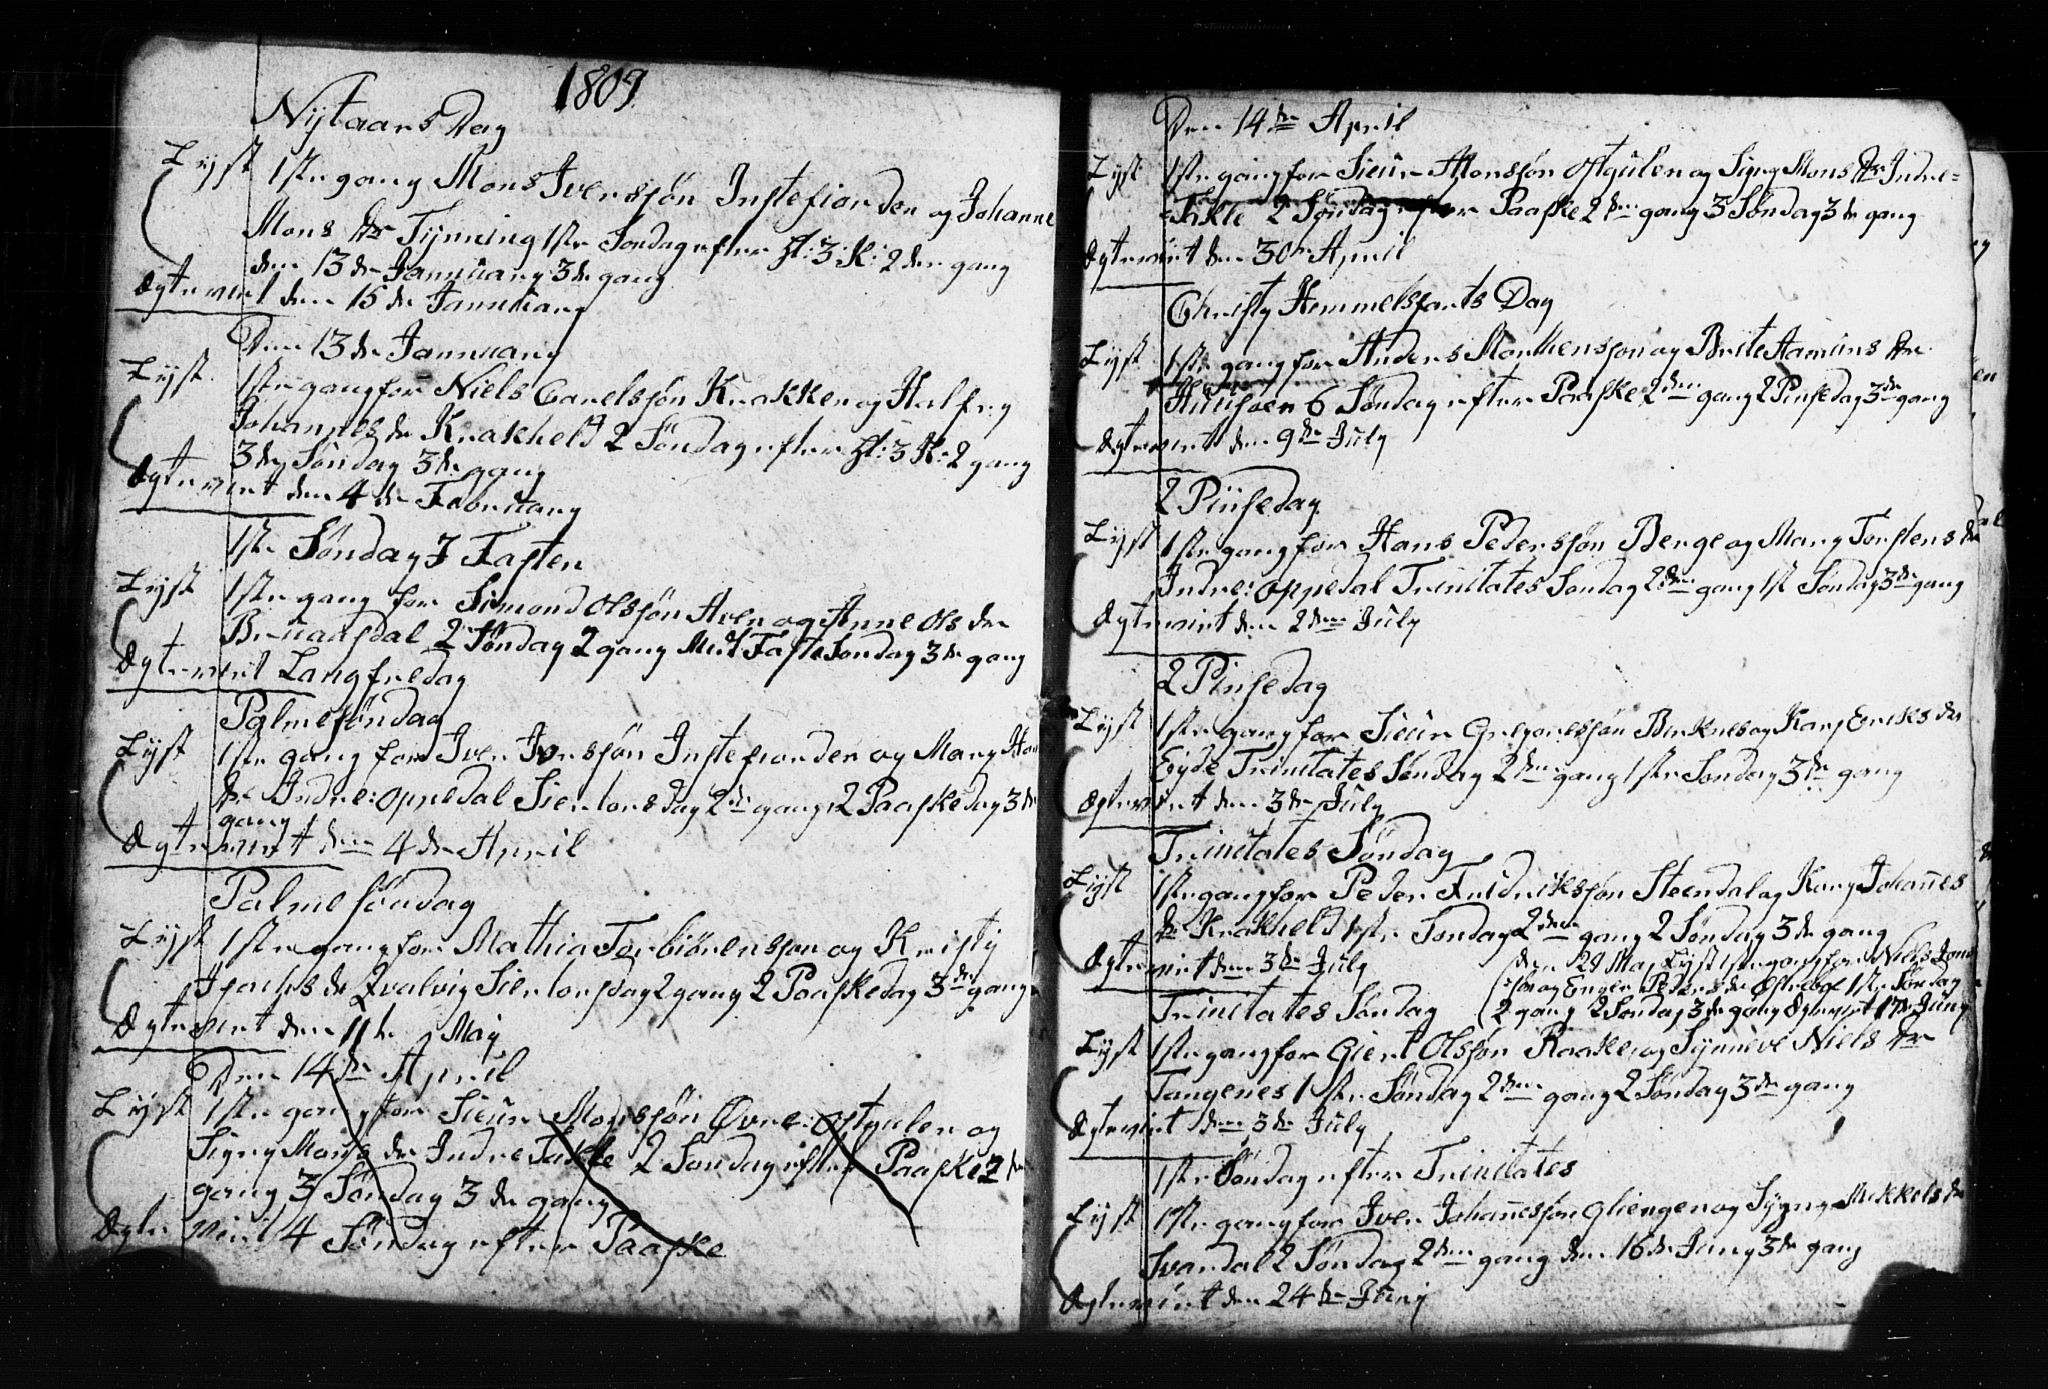 1809
Nÿtaars Dag
Lyst 1ste gang Mons Iverssøn Instefiorden og Johanne
Mons dtr Tynning 1ste Søndag efter H: 3: K: 2den gang
den 13de Jannuary 3de gang
Egteviet den 15de Jannuary
Den 13de Jannuary
Lyst 1ste gang for Niels Carelssøn Krakken og Kalfry
Johannes dr Krakheld 2 Søndag efter H: 3 K: 2 gang
3die Søndag 3de gang
Egteviet den 4de Februarÿ
1ste Søndag J Fasten
Lyst 1ste gang for Simond Olssøn Aven og Anne Ols dr
Bruaasdal 2 Søndag 2 gang Mit Faste Søndag 3de gang
Egteviet Langfredag
Palmesøndag
Lyst 1ste gang for Iver Iverssøn Instefiorden og Mary Han
dtr Indre: Oppedal Siertorsdag 2de gang 2 Paaskedag 3de
gang
Egteviet den 4de April
Palmesøndag
Lyst 1ste gang for Mathia Torbiörenssøn og Kristÿ
Isachs dr Qvalvig Siertorsdag 2 gang 2 Paaskedag 3de gang
Egteviet den 11te May
Den 14de April
Lÿst 1ste gang for Siur Monssøn Øvre: Ostgulen og
Signy Mons dr Indre Takle 2 Søndag efter Paaske 2de
gang 3 Søndag 3de gang
Egteviet 4 Søndag efter Paaske
Den 14de April
Lyst 1ste gang for Siur Monssøn Ostgulen og Signy Mons dtr Indre=
=Takle 2 Søndag efter Paaske 2den gang 3 Søndag 3de gang
Egteviet den 30te April
Christy Hemmelsfarts Dag
Lyst 1ste gang for Anders Marthenssøn og Brite Hamuns dtr
Huusøen 6 Søndag efter Paaske 2den gang 2 Pinsedag 3de gang
Egteviet den 9de July
2 Pinsedag
Lyst 1ste gang for Hans Pederssøn Berge og Mary Torstens dr
Indre: Oppedal Trinitates Søndag 2den gang 1st Søndag 3de gang
Egteviet den 2den July
2 Pinsedag
Lyst 1ste gang for Siur Gregoriessøn Birknes og Kary Eriks dr
Eyde Trinitates Søndag 2den gang 1ste Søndag 3de gang
Egteviet den 3de July
Trinitates Søndag
Lÿst 1ste gang for Peder Fridrikssøn Steendal og Kary Johannes
dr Krakheld 1ste Søndag 2den gang 2 Søndag 3de gang
Egteviet den 3de July
(den 28 May Lyst 1ste gang for Niels Jons
søn og Peders dr Ostrebøe 1ste Søndag
2 gang 2 Søndag 3de gang Egteviet 17de Juny
Trinitates Søndag
Lyst 1ste gang for Giert Olssøn Raake og Synneve Niels dtr
Tangenes 1ste Søndag 2den gang 2 Søndag 3de gang
Egteviet den 3de July
1ste Søndag efter Trinitates
Lyst 1ste gang for Iver Johannessøn Glienge og Sygny Mekkels dr
Svardal 2 Søndag 2den gang den 16de Juny 3de gang
Egteviet den 24de Juny